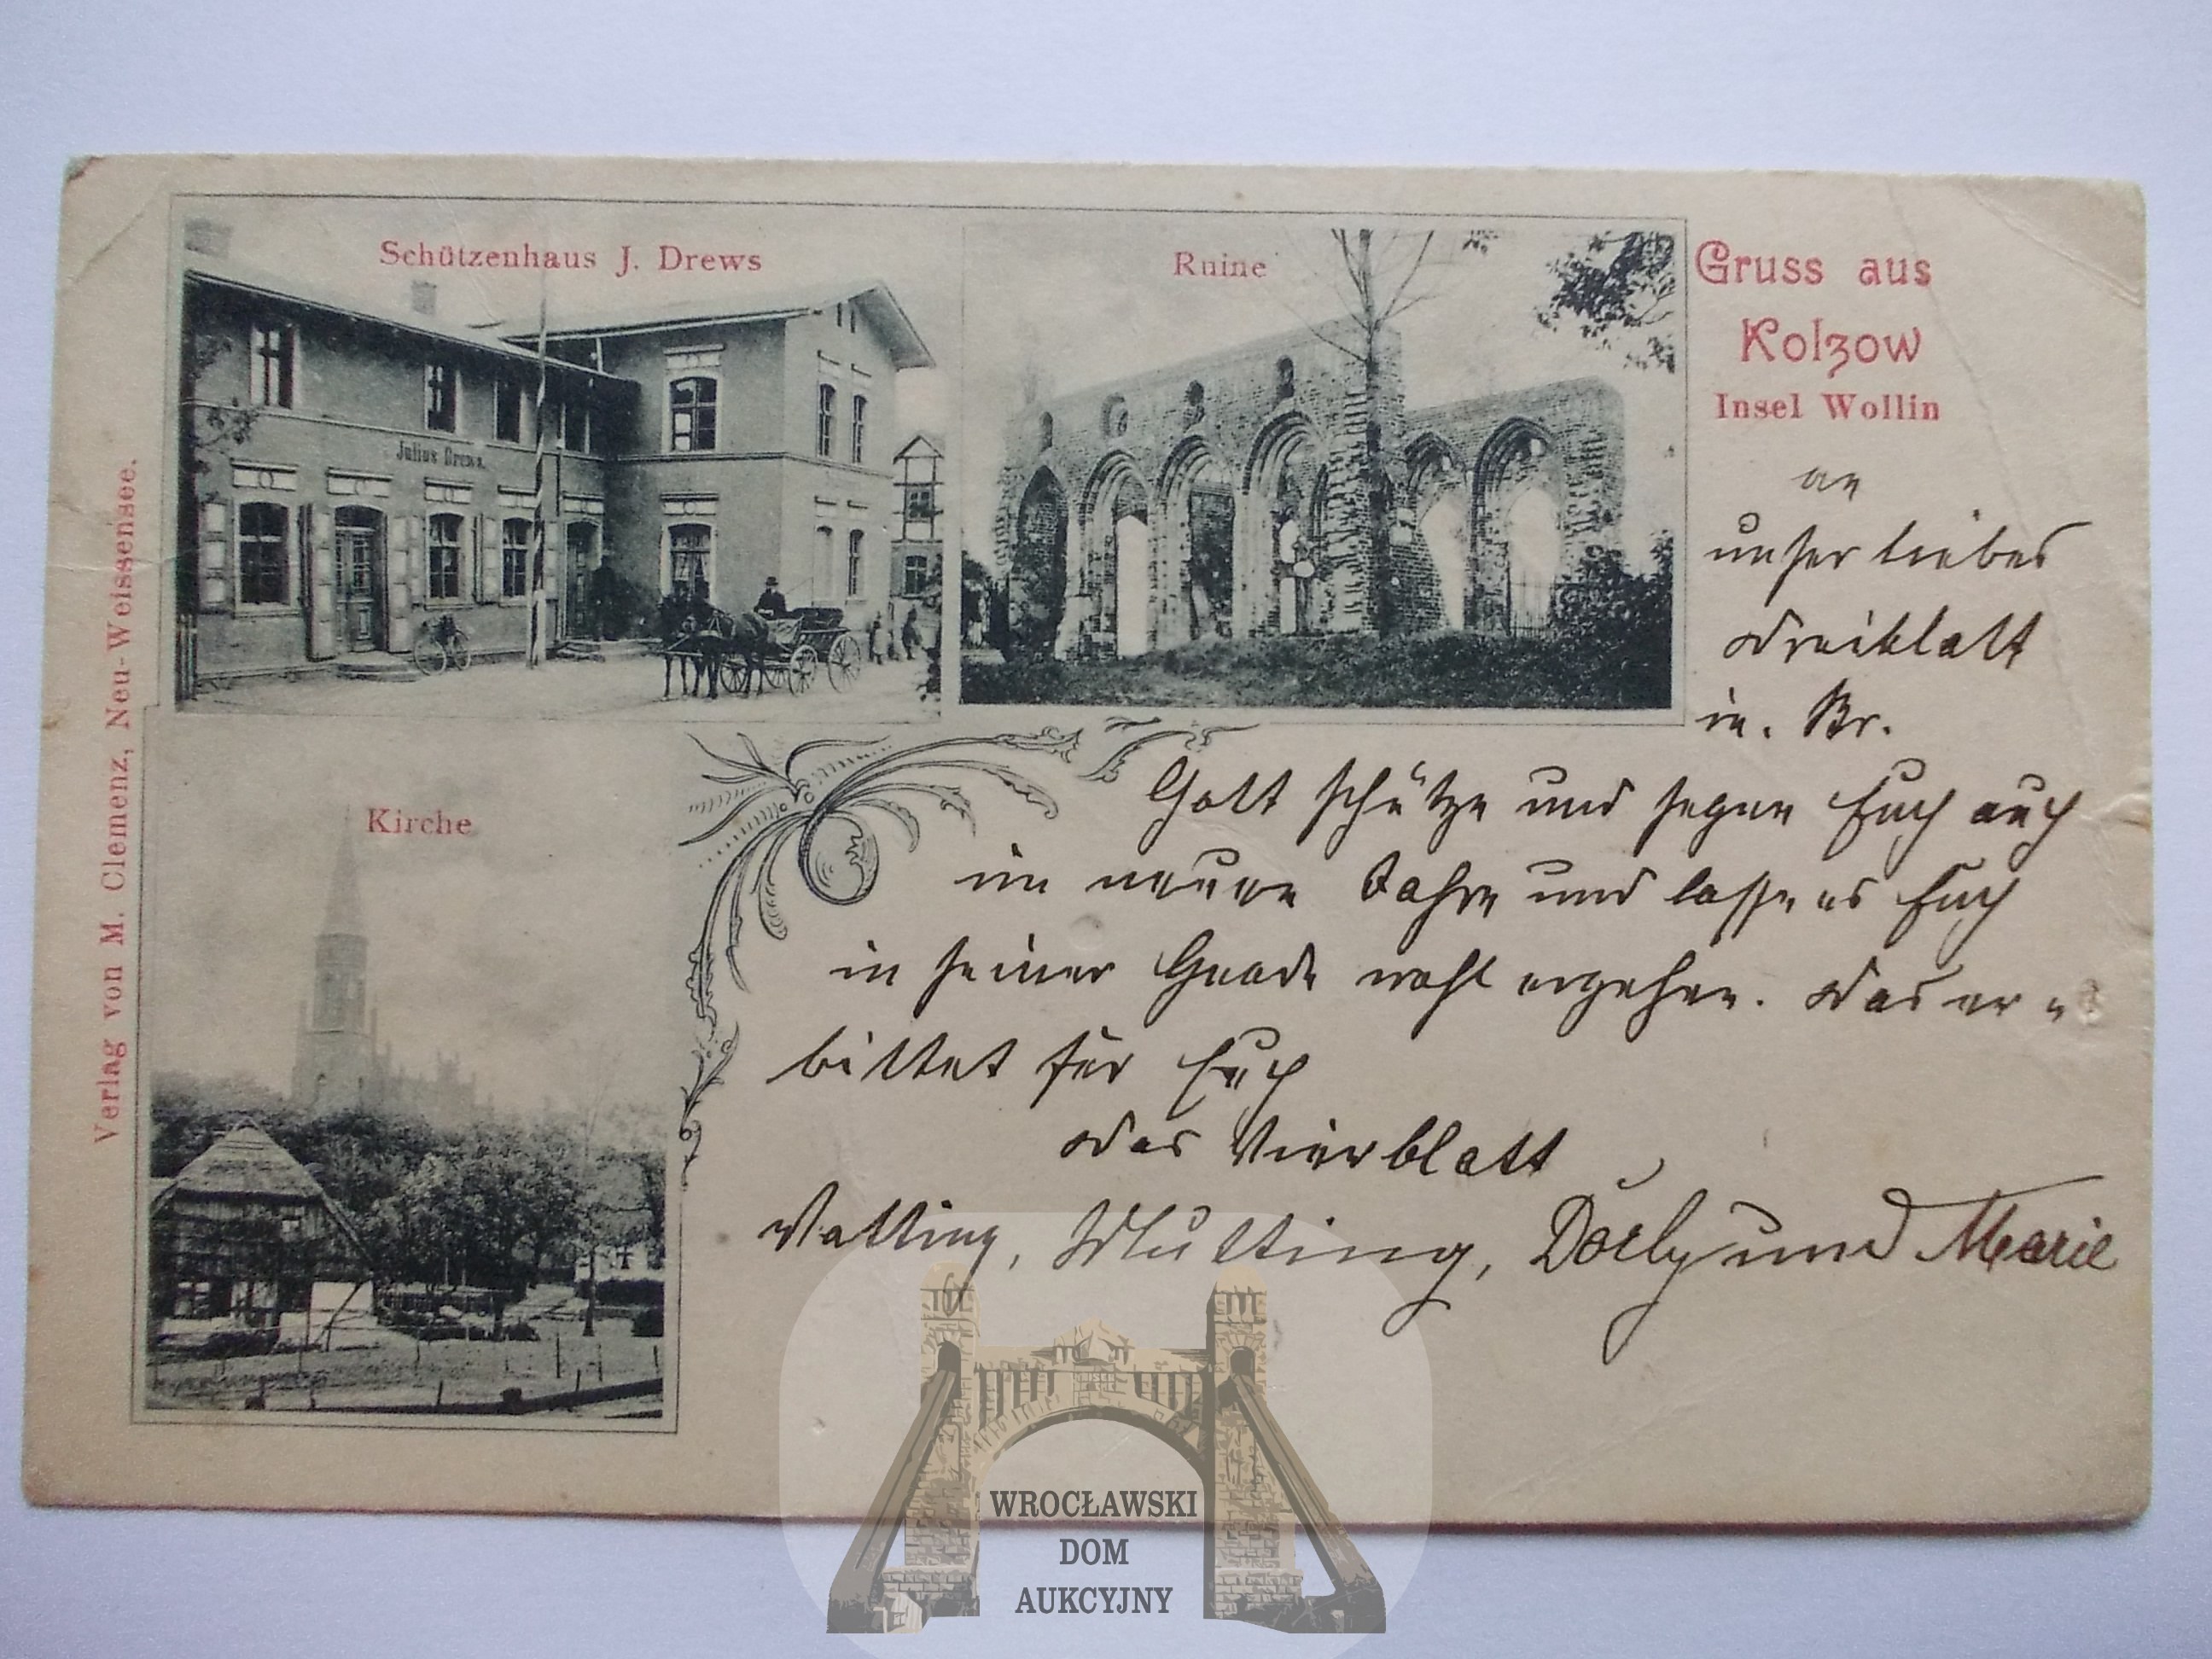 Schützenhaus J. Drews
Julius Drews.
Ruine
Gruss aus
Kolzow
Insel Wollin
Kirche
Verlag von M. Clemenz, Neu-Weissensee.
an
unser liebes
Dreiblatt
in. Br.
Gott schütze und segne Euch auch
im neuen Jahre und lasse es Euch
in seiner Gnade wohl ergehen. Das er-
bittet für Euch
Das Vierblatt
Vatting, Mutting, Dörly und Marie
WROCŁAWSKI
DOM
AUKCYJNY